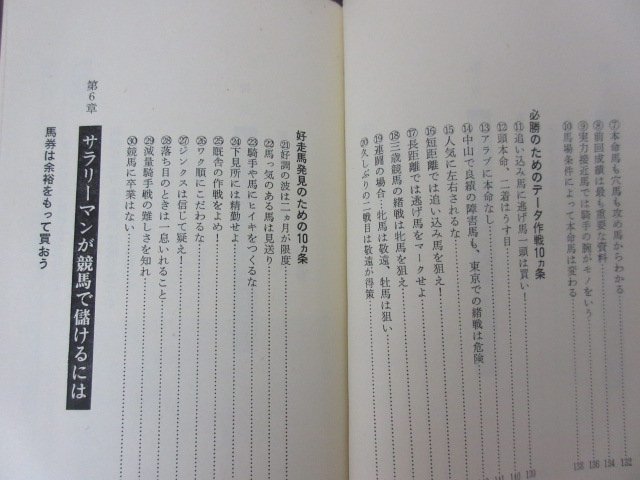 ⑦本命馬も穴馬も攻め馬からわかる……132
⑧前回成績は最も重要な資料……134
⑨実力接近馬では騎手の腕がモノをいう……136
⑩馬場条件によって本命馬は変わる……138
必勝のためのデータ作戦10ヵ条
⑪追い込み馬に逃げ馬一頭は買い!……139
⑫頭本命、二着はうす目……140
⑬アラブに本命なし……141
⑭中山で良績の障害馬も、東京での緒戦は危険
⑮人気に左右されるな……
⑯短距離では追い込み馬を狙え!……
⑰長距離では逃げ馬をマークせよ……
⑱三歳競馬の緒戦は牝馬を狙え!……
⑲連闘の場合…牝馬は敬遠、牡馬は狙い……
⑳久しぶりの二戦目は敬遠が得策……
好走馬発見のための10ヵ条
㉑好調の波は二ヵ月が限度……
㉒馬っ気のある馬は見送り……
㉓騎手や馬にヒイキをつくるな……
㉔下見所には精勤せよ……
㉕厩舎の作戦をよめ!……
㉖ワク順にこだわるな……
㉗ジンクスは信じて疑え!……
㉘落ち目のときは一息いれること……
㉙減量騎手戦の難しさを知れ……
㉚競馬に卒業はない……
第6章 サラリーマンが競馬で儲けるには
馬券は余裕をもって買おう